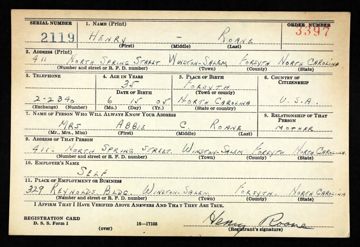 SERIAL NUMBER 1. NAME (Print) ORDER NUMBER
2119 HENRY - ROANE 3397
(First) (Middle) (Last)
2. ADDRESS (Print)
411 NORTH SPRING STREET WINSTON-SALEM FORSYTH NORTH CAROLINA
(Number and street or R. F. D. number) (Town) (County) (State)
3. TELEPHONE 4. AGE IN YEARS 5. PLACE OF BIRTH 6. COUNTRY OF CITIZENSHIP
35 FORSYTH
DATE OF BIRTH (Town) (County)
2-2340 6 15 05 NORTH CAROLINA U.S.A.
(Exchange) (Number) (Mo.) (Day) (Yr.) (State or country)
7. NAME OF PERSON WHO WILL ALWAYS KNOW YOUR ADDRESS 8. RELATIONSHIP OF THAT PERSON
MRS ABBIE C. ROANE MOTHER
(Mr., Mrs., Miss) (First) (Middle) (Last)
9. ADDRESS OF THAT PERSON
411 NORTH SPRING STREET. WINSTON-SALEM FORSYTH NORTH CAROLINA
(Number and street or R. F. D. number) (Town) (County) (State)
10. EMPLOYER'S NAME
SELF
11. PLACE OF EMPLOYMENT OR BUSINESS
329 REYNOLDS BLDG. WINSTON-SALEM FORSYTH NORTH CAROLINA
(Number and street or R. F. D. number) (Town) (County) (State)
I AFFIRM THAT I HAVE VERIFIED ABOVE ANSWERS AND THAT THEY ARE TRUE.
REGISTRATION CARD
D. S. S. Form 1 (over) Henry Roane
(Registrant's signature)